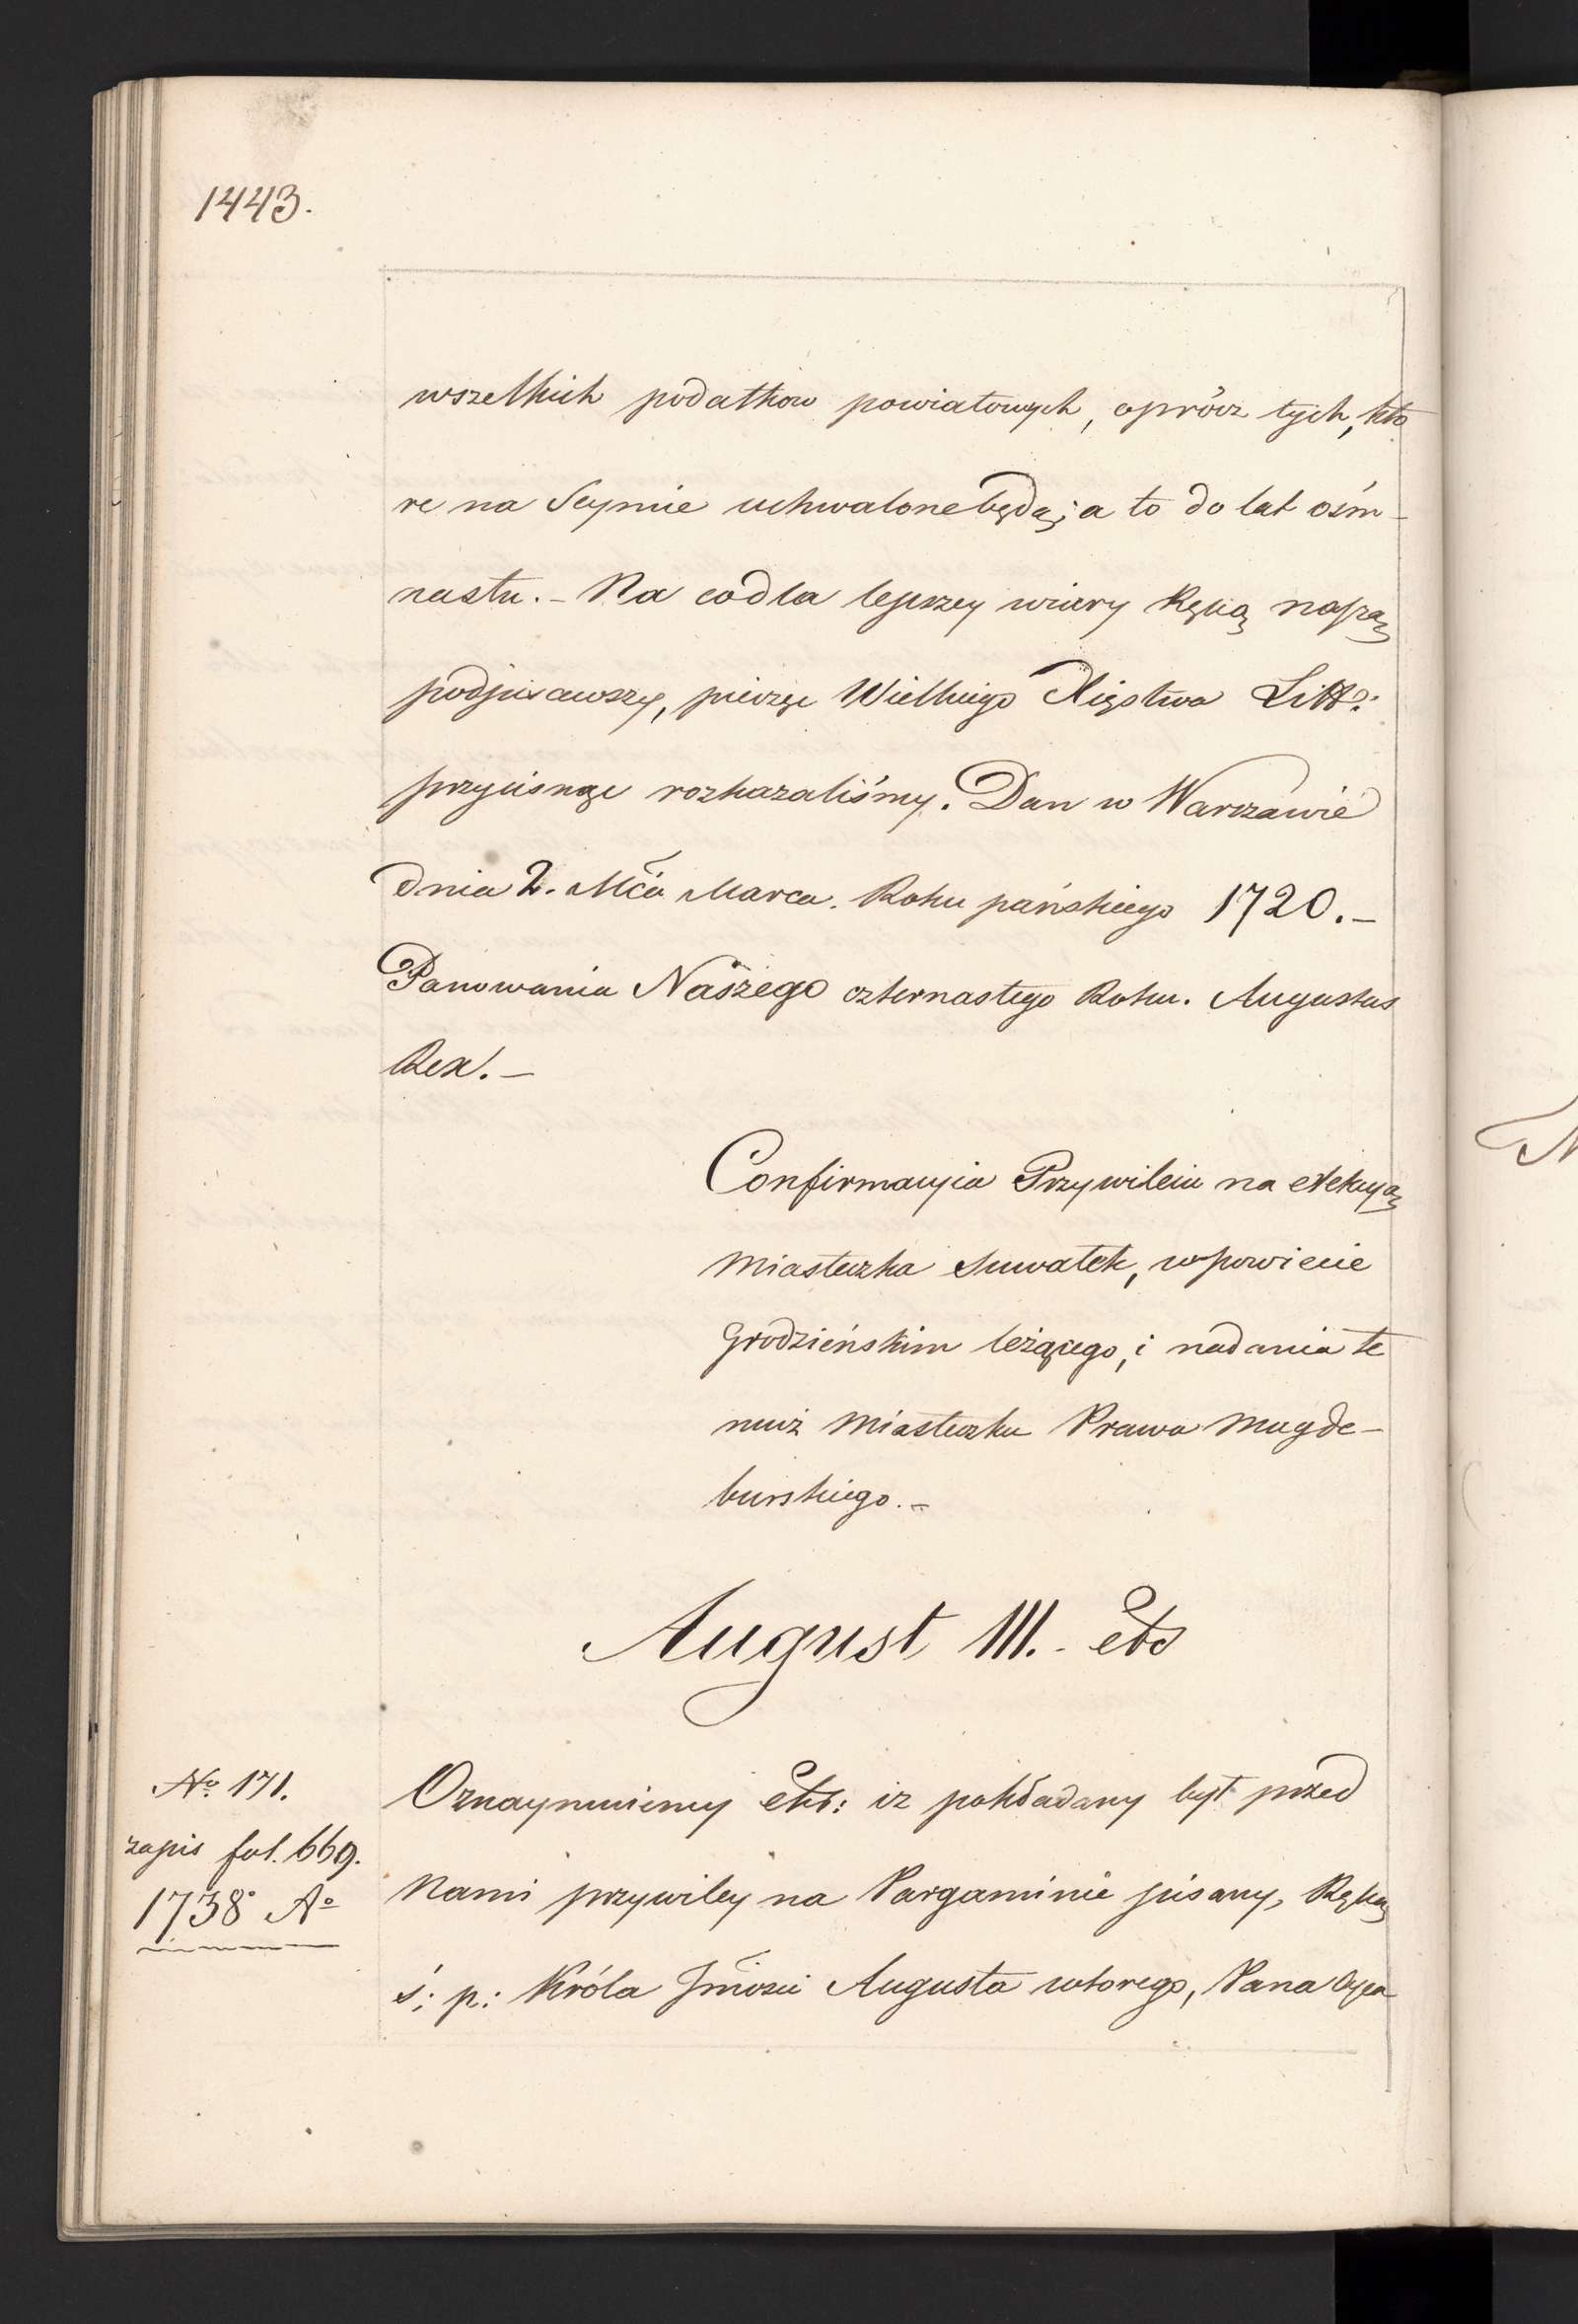 1443.
wszelkich podatkow powiatowych, oprócz tych, któ
re na Seymie uchwalone będą; a to do lat ośm-
nastu. - Na co dla lepszey wiary Ręką naszą
podpisawszy, pieczęć Wielkiego Xięstwa Litt:
przycisnąć rozkazaliśmy. Dan w Warszawie
dnia 2. Mca Marca. Roku pańskiego 1720. -
Panowania Naszego czternastego Roku. Augustus
Rex. -
Confirmacyia Przywileiu na erekcyą
Miasteczka Suwałek, w powiecie
Grodzieńskim leżącego, i nadania te
muż Miasteczku Prawa Magde-
burskiego. -
August III. - etc
No 171.
zapis fol. 669.
1738 Ao
Oznaymuiemy etc: iz pokładany był przed
Nami przywiley na Pargaminie pisany, Ręką
ś: p: Króla Jmości Augusta wtorego, Pana Oyca